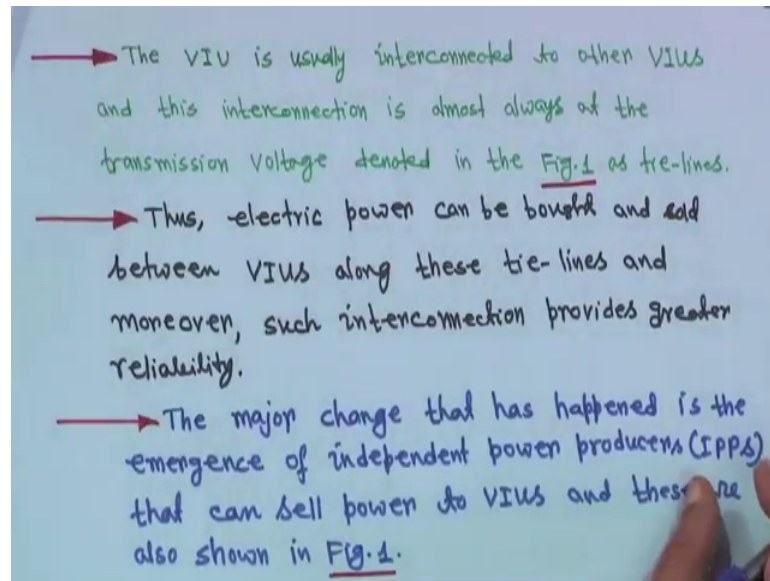 The VIU is usually interconnected to other VIUs
and this interconnection is almost always at the
transmission voltage denoted in the Fig.1 as tie-lines.
Thus, electric power can be bought and sold
between VIUs along these tie-lines and
moreover, such interconnection provides greater
reliability.
The major change that has happened is the
emergence of independent power producers (IPPs)
that can sell power to VIUs and these
also shown in Fig.1.